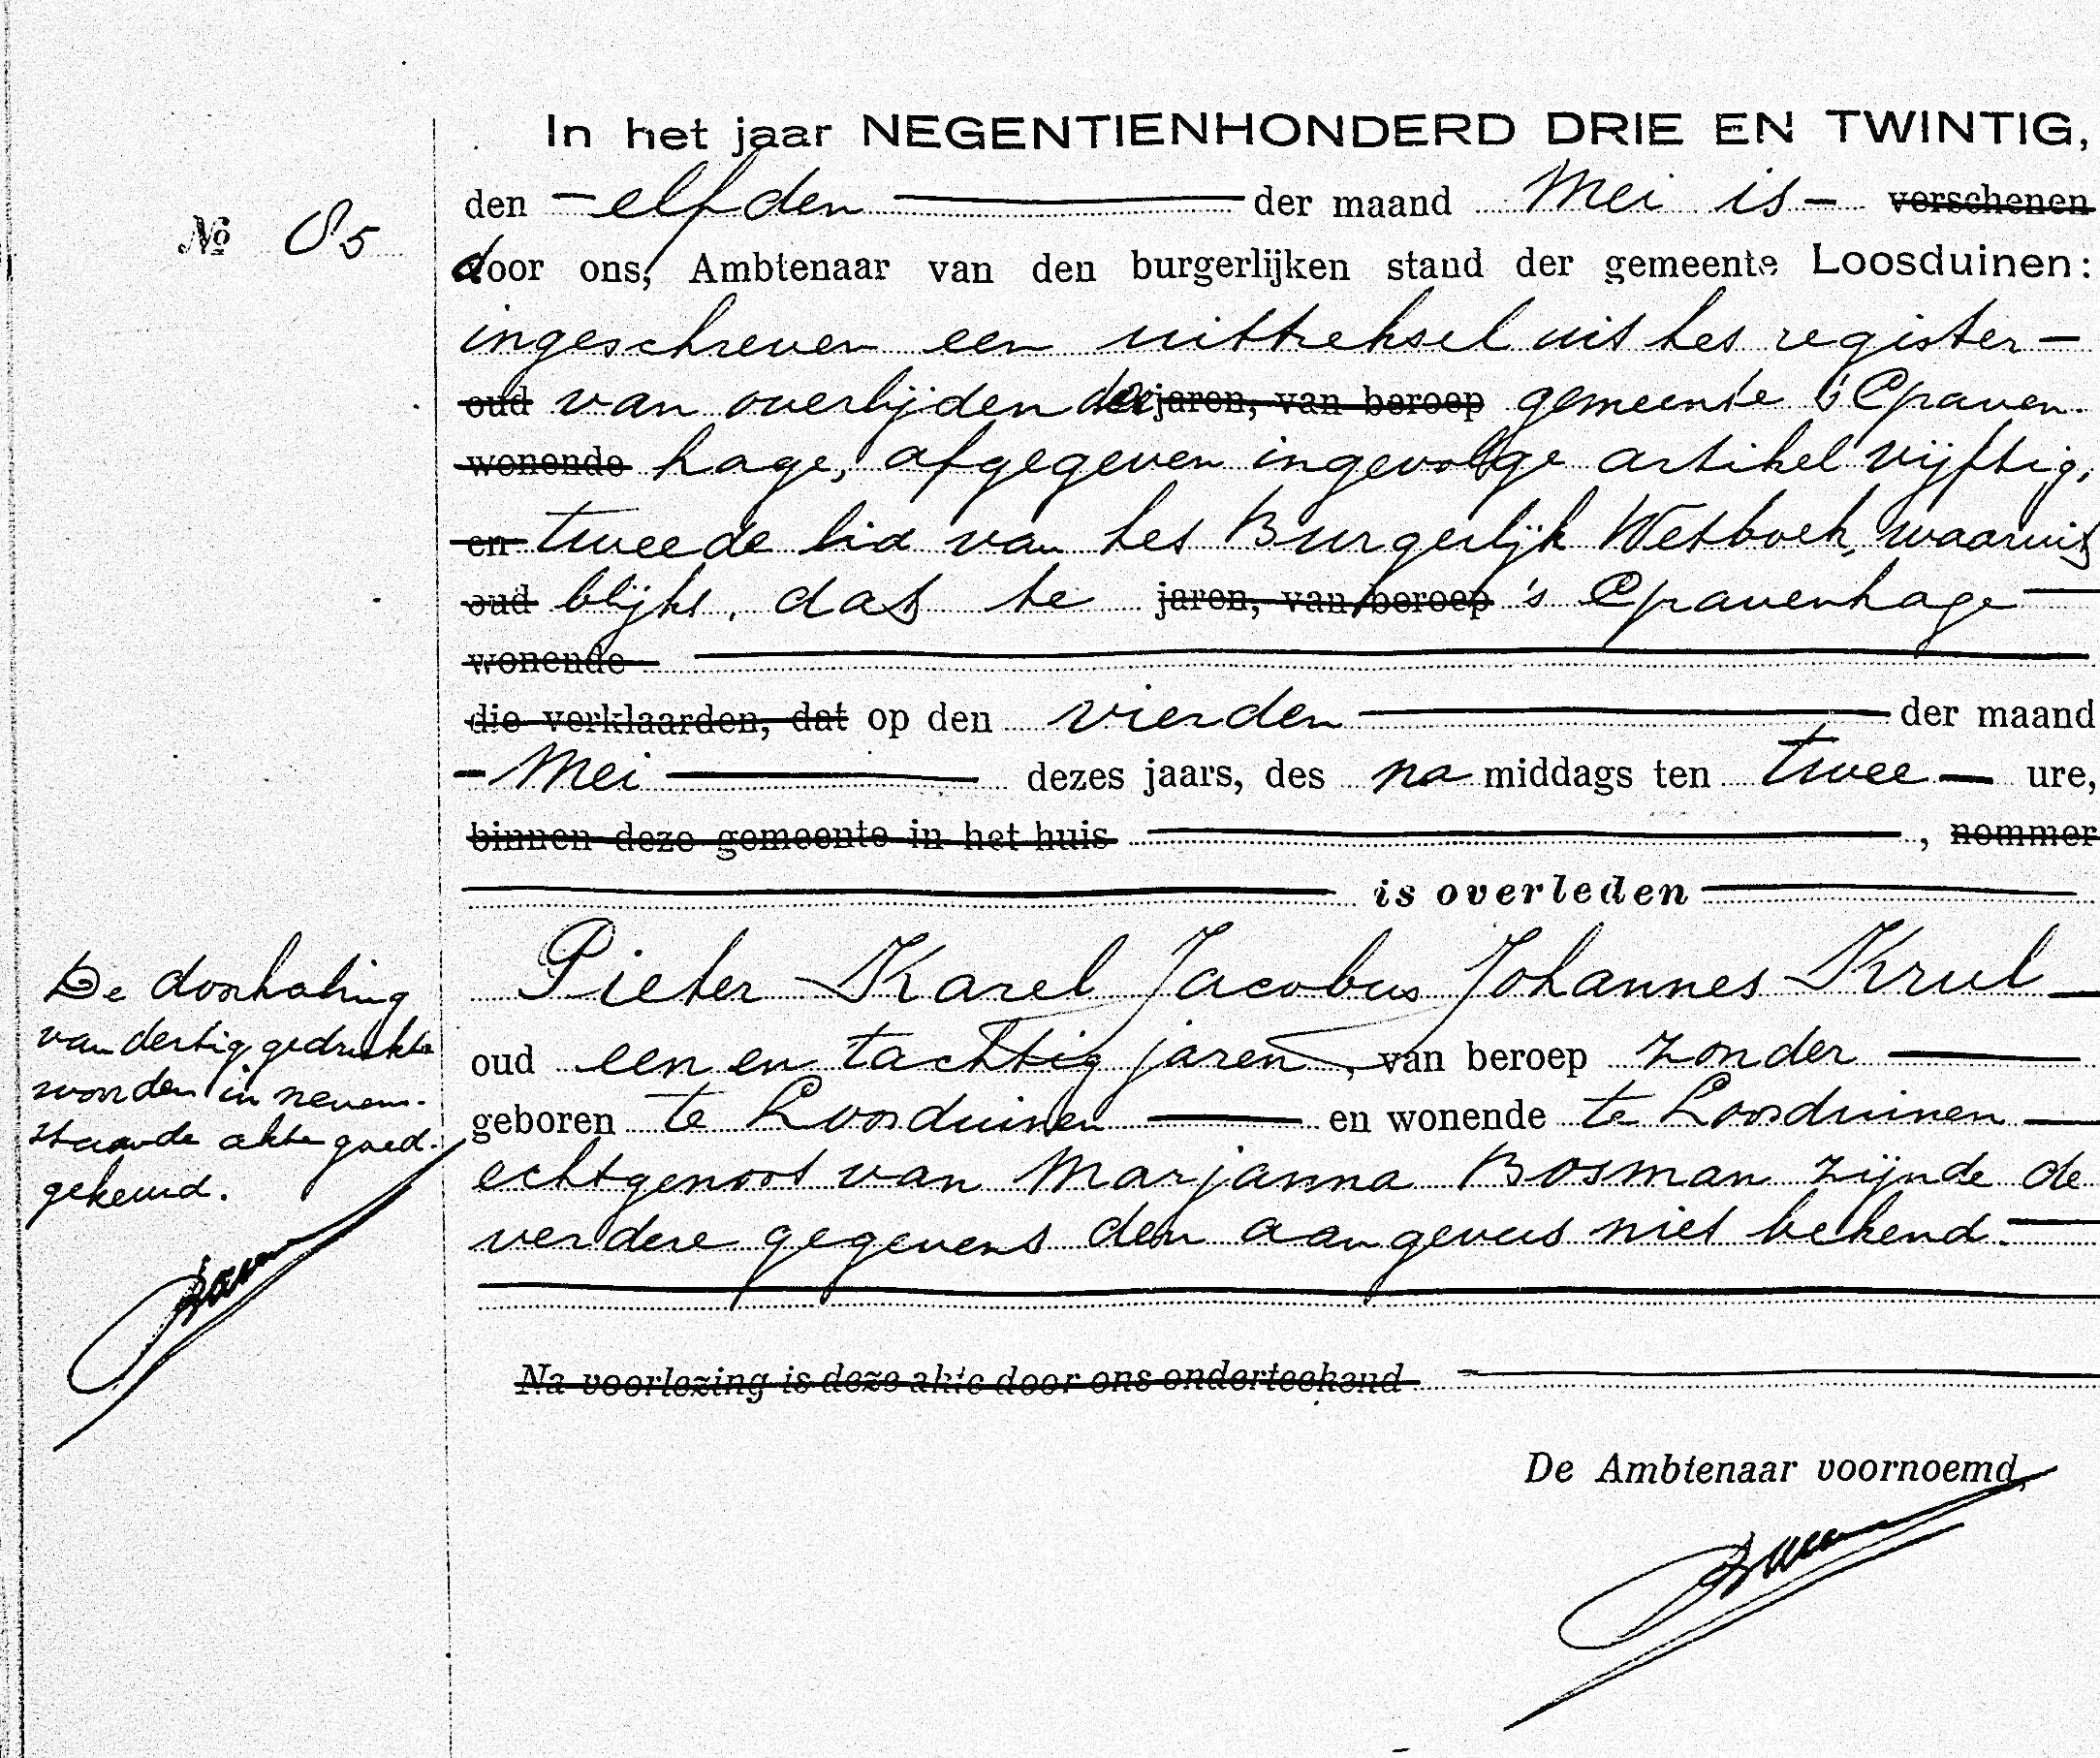 In het jaar NEGENTIENHONDERD DRIE EN TWINTIG,
den elfden der maand Mei is verschenen
No 85
door ons, Ambtenaar van den burgerlijken stand der gemeente Loosduinen:
ingeschreven een uittreksel uit het register
oud van overlijden der jaren, van beroep gemeente 's Graven-
wonende hage, afgegeven ingevolge artikel vijftig,
en tweede lid van het Burgerlijk Wetboek, waaruit
oud blijkt, dat te jaren, van beroep 's Gravenhage
wonende
die verklaarden, dat op den vierden der maand
Mei dezes jaars, des na middags ten twee ure,
binnen deze gemeente in het huis , nommer
is overleden
Pieter Karel Jacobus Johannes Krul
oud een en tachtig jaren, van beroep zonder
geboren te Loosduinen en wonende te Loosduinen
echtgenoot van Marjanna Bosman zijnde de
verdere gegevens den aangevers niet bekend.
De doorhaling
van dertig gedrukte
woorden in neven-
staande akte goed-
gekeurd.
Na voorlezing is deze akte door ons onderteekend
De Ambtenaar voornoemd,